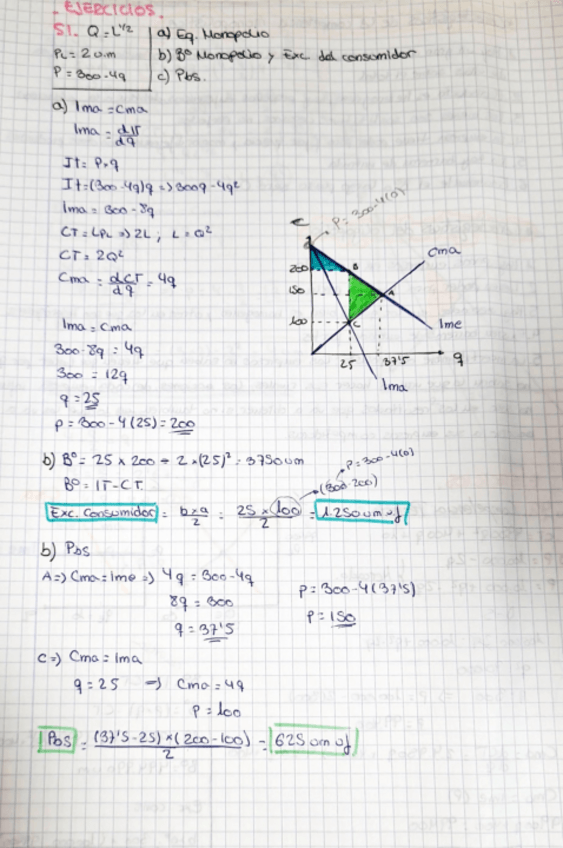 - EJERCICIOS.
S1. Q = L^1/2 | a) Eq. Monopolio
PL = 2 u.m | b) Bº Monopolio y Exc. del consumidor
P = 300 - 4q | c) Pbs.
a) Ima = Cma
Ima = dIT/dq
It = P × q
It = (300 - 4q)q => 300q - 4q²
Ima = 300 - 8q
CT = LPL => 2L ; L = Q²
CT = 2Q²
Cma = dCT/dq = 4q
Ima = Cma
300 - 8q = 4q
300 = 12q
q = 25
P = 300 - 4(25) = 200
€
P = 300 - 4(0)
Cma
200
B
150
A
100
C
Ime
25
37'5
q
Ima
b) Bº = 25 × 200 - 2 × (25)² = 3750 um
Bº = IT - CT.
P = 300 - 4(0)
(300 - 200)
Exc. Consumidor = b×a/2 = 25 × 100/2 = 1.250 um
b) Pbs
A => Cma = Ime => 4q = 300 - 4q
8q = 300
q = 37'5
P = 300 - 4(37'5)
P = 150
C => Cma = Ima
q = 25 => Cma = 4q
P = 100
Pbs = (37'5 - 25) × (200 - 100)/2 = 625 um